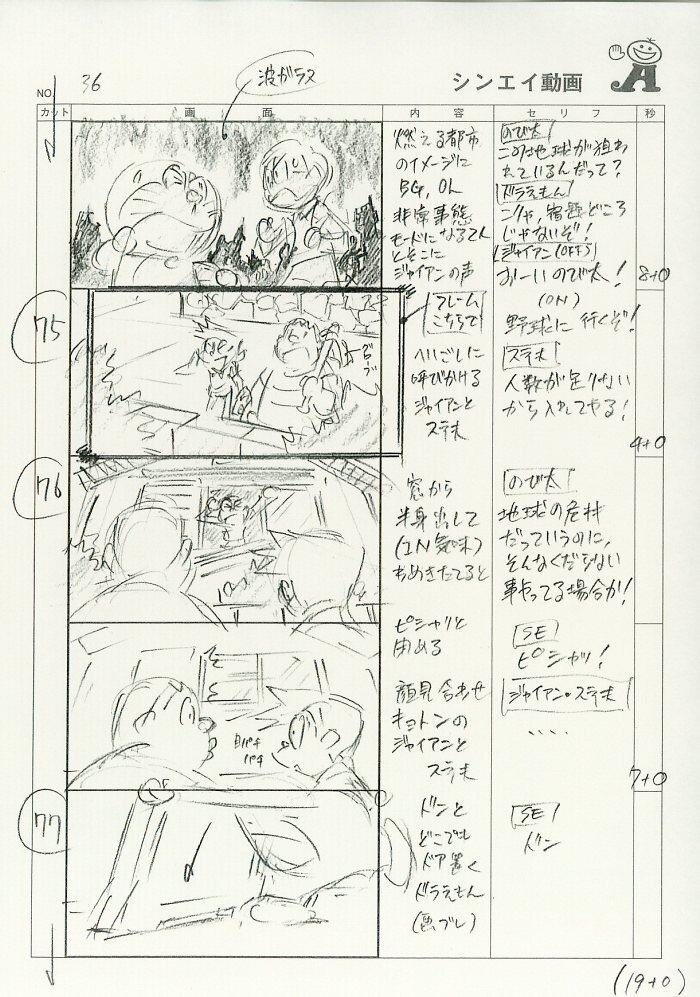 NO. 36
波ガラス
シンエイ動画
カット
画面
内容
セリフ
秒
燃える都市
のイメージに
BG, OL
非常事態
モードになる2人
とそこに
ジャイアンの声
のび太
この地球が狙わ
れているんだって?
ドラえもん
こりゃ、宿題どころ
じゃないぞ!
ジャイアン(OFF)
おーいのび太!
8+0
75
フレーム
こちらで
へいごしに
呼びかける
ジャイアンと
スネ夫
(ON)
野球に行くぞ!
スネ夫
人数が足りない
から入れてやる!
4+0
76
窓から
半身出して
(IN気味)
わめきたてると
のび太
地球の危機
だっていうのに、
そんなくだらない
事やってる場合か!
ピシャリと
閉める
SE
ピシャッ!
顔見合わせ
キョトンの
ジャイアンと
スネ夫
ジャイアン・スネ夫
....
7+0
77
ドンと
どこでも
ドア置く
ドラえもん
(画ブレ)
SE
ドン
(19+0)